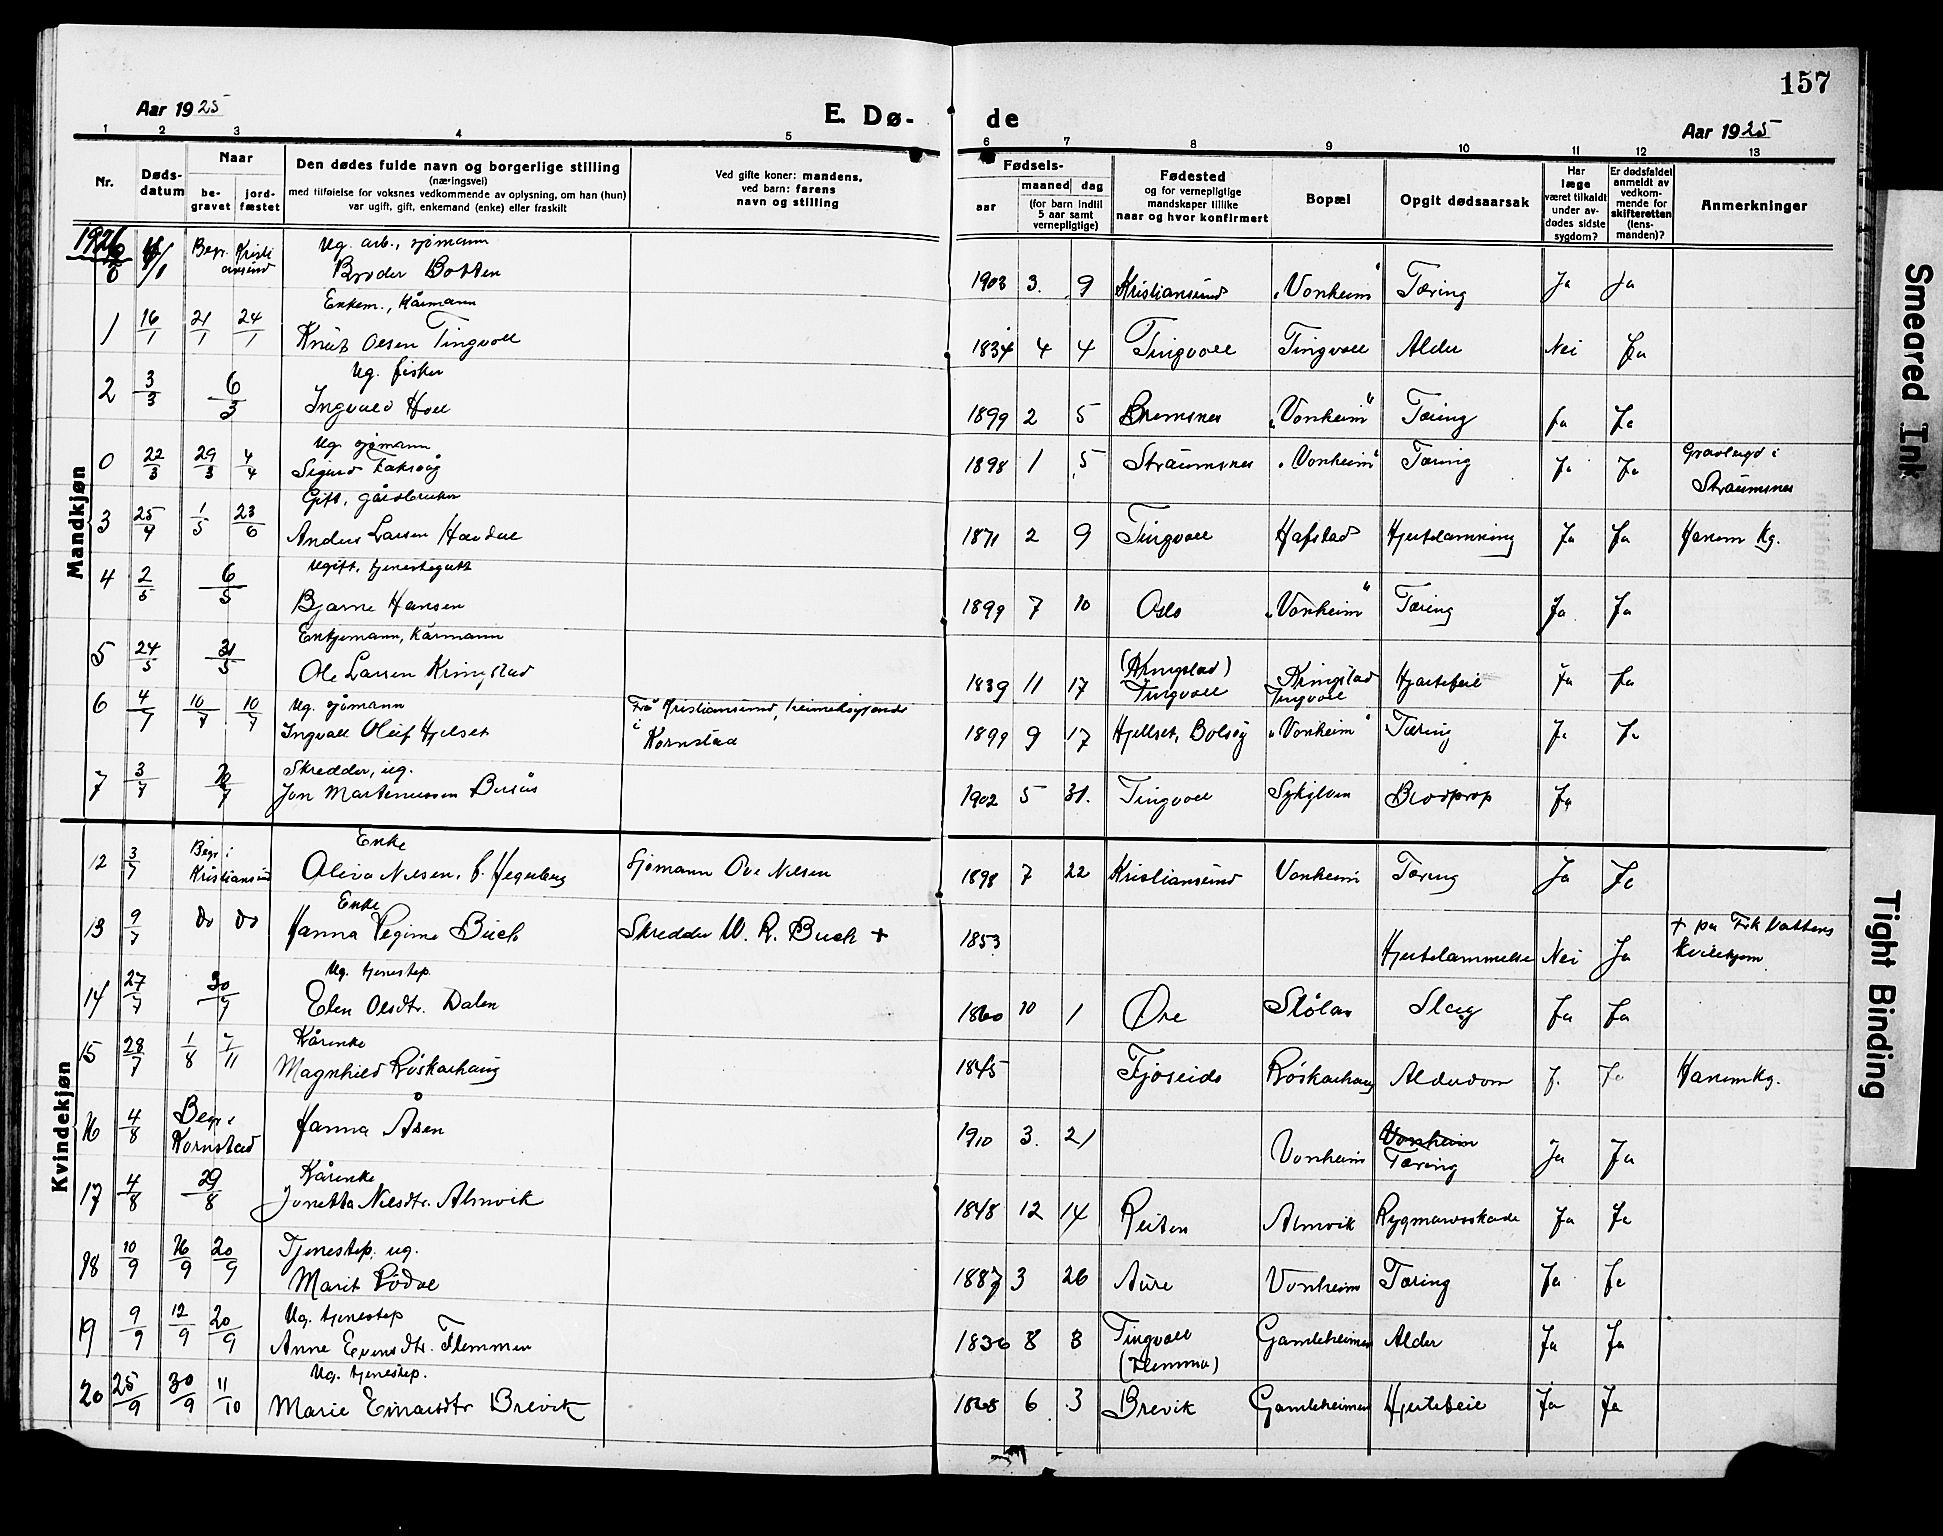 157
Aar 1925
E. Dø-
de
Aar 1925
1 2 3 4 5 6 7 8 9 10 11 12 13
Nr.
Døds-
datum
Naar
be-
gravet
jord-
fæstet
Den dødes fulde navn og borgerlige stilling
(næringsvei)
med tilføielse for voksnes vedkommende av oplysning, om han (hun)
var ugift, gift, enkemand (enke) eller fraskilt
Ved gifte koner: mandens,
ved barn: farens
navn og stilling
Fødsels-
aar
maaned dag
(for barn indtil
5 aar samt
vernepligtige)
Fødested
og for vernepligtige
mandskaper tillike
naar og hvor konfirmert
Bopæl
Opgit dødsaarsak
Har
læge
været tilkaldt
under av-
dødes sidste
sygdom?
Er dødsfaldet
anmeldt av
vedkom-
mende for
skifteretten
(lens-
manden)?
Anmerkninger
Mandkjøn
1926
Ug. arb., sjømann
0 Begr. Kristiansund Broder Botten 1903 3. 9 Kristiansund "Vonheim" Tæring Ja Ja
Enkem., Kårmann
1 16/1 21/1 24/1 Knut Olsen Tingvoll 1834 4 4 Tingvoll Tingvoll Alder Nei Ja
Ug. fisker
2 3/3 6/3 Ingvald Holl 1899 2 5 Bremsnes "Vonheim" Tæring Ja Ja
Ug. sjømann
0 22/3 29/3 4/4 Sigurd Faksvåg 1898 1 5 Straumsnes "Vonheim" Tæring Ja Ja Gravlagd i
Straumsnes
Gift, gårdbruker
3 25/4 1/5 23/6 Anders Larsen Havdal 1871 2 9 Tingvoll Hafstad Hjertelamning Ja Ja Hanem Kg.
Ugift, tjenestegutt
4 2/5 6/5 Bjarne Hansen 1899 7 10 Oslo "Vonheim" Tæring Ja Ja
Enkjemann, Kårmann
5 24/5 31/5 Ole Larsen Kringstad 1839 11 17 (Kringstad) Tingvoll Kringstad Tingvoll Hjertefeil Ja Ja
Ug. sjømann
6 4/7 10/7 10/7 Ingvall Oluf Hjelset Frå Kristiansund, heimehøyrande
i Kornstad 1899 9 17 Hjellset, Bolsøy "Vonheim" Tæring Ja Ja
Skredder, ug.
7 3/7 20/7 Jon Martenussen Busås 1902 5 31. Tingvoll Sykylven Blodprop Ja
Kvindekjøn
Enke
12 3/7 Begr. i Kristiansund Oliva Nilsen, f. Hegerberg Sjømann Ove Nilsen 1898 7 22 Kristiansund Vonheim Tæring Ja Ja
Enke
13 9/7 do do Hanna Regine Buch Skredder W. R. Buch + 1853 Hjertelammelse Nei Ja + på Frk Vattens
Kvilehjem
Ug. tjenestep.
14 27/7 30/7 Elen Olsdtr. Dalen 1860 10 1 Øre Stølan Slag Ja Ja
Kårenke
15 28/7 1/8 7/11 Magnhild Røskarhaug 1845 Fjøseide Røskarhaug Alderdom J. Ja Hanem Kg.
16 4/8 Begr. i Kornstad Hanna Åsen 1910 3. 21 Vonheim Vonheim Tæring Ja Ja
Kårenke
17 4/8 29/8 Jonetta Nilsdtr. Almvik 1848 12 14 Reiten Almvik Rygmarvsskade Ja Ja
Tjenestep. ug.
18 10/9 16/9 20/9 Marit Rødal 1887 3 26 Aure Vonheim Tæring Ja Ja
Ug. tjenestep
19 9/9 12/9 20/9 Anne Evensdtr. Flemmen 1836 8 3 Tingvoll (Flemma) Gamleheimen Alder Ja Ja
Ug. tjenestep.
20 25/9 30/9 11/10 Marie Einarsdtr Brevik 1868 6 3 Brevik Gamleheimen Hjertefeil Ja Ja
Smeared Ink
Tight Binding